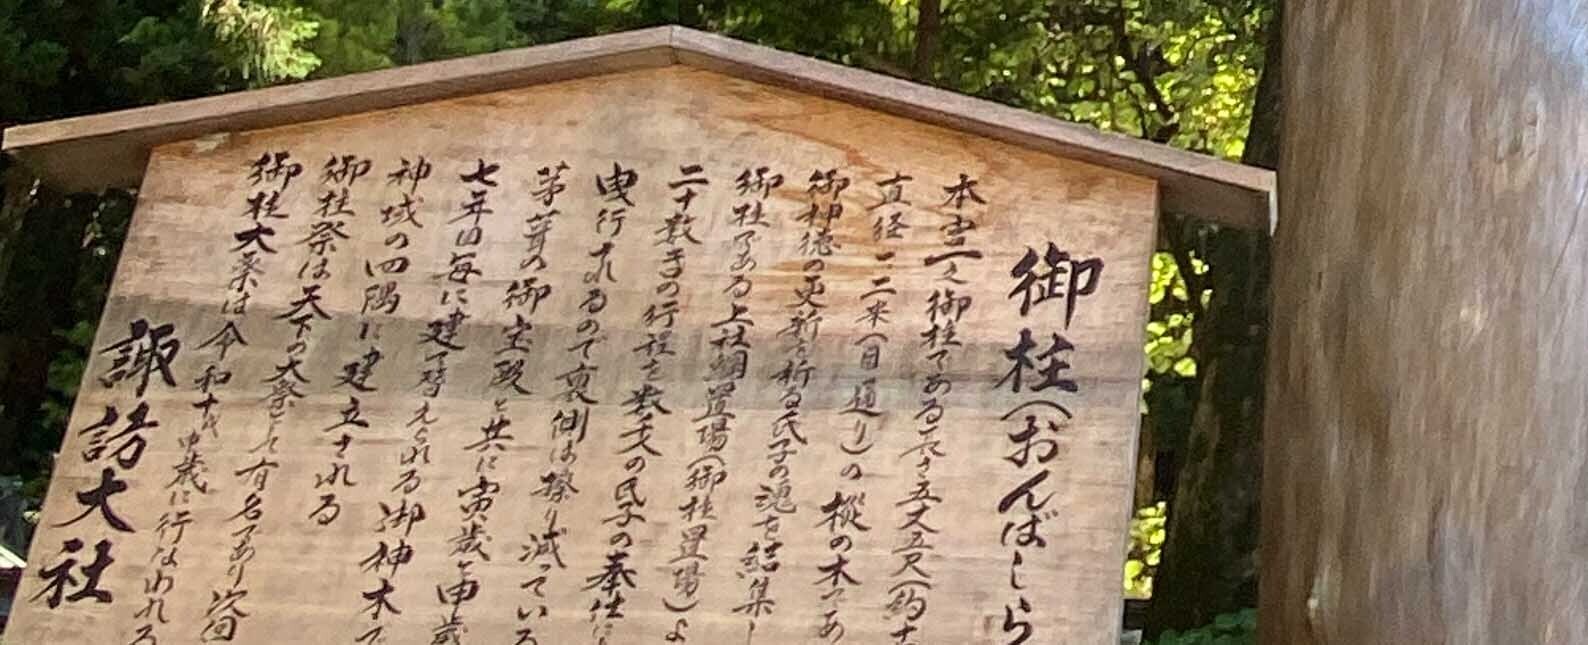 御柱(おんばしら
本宮一之御柱である長さ五丈五尺(約十
直径一・二米(目通り)の樅の木であ
御神徳の更新を祈る氏子の魂を結集し
御柱である上社綱置場(御柱置場)よ
二十数キロの行程を数千人の氏子の奉仕に
曳行されるので裏側は擦り減っている
茅葺の御宝殿と共に寅歳と申歳
七年目毎に建て替えられる御神木で
神域の四隅に建立される
御柱祭は天下の大祭として有名であり次回
御柱大祭は令和十年申歳に行なわれる
諏訪大社